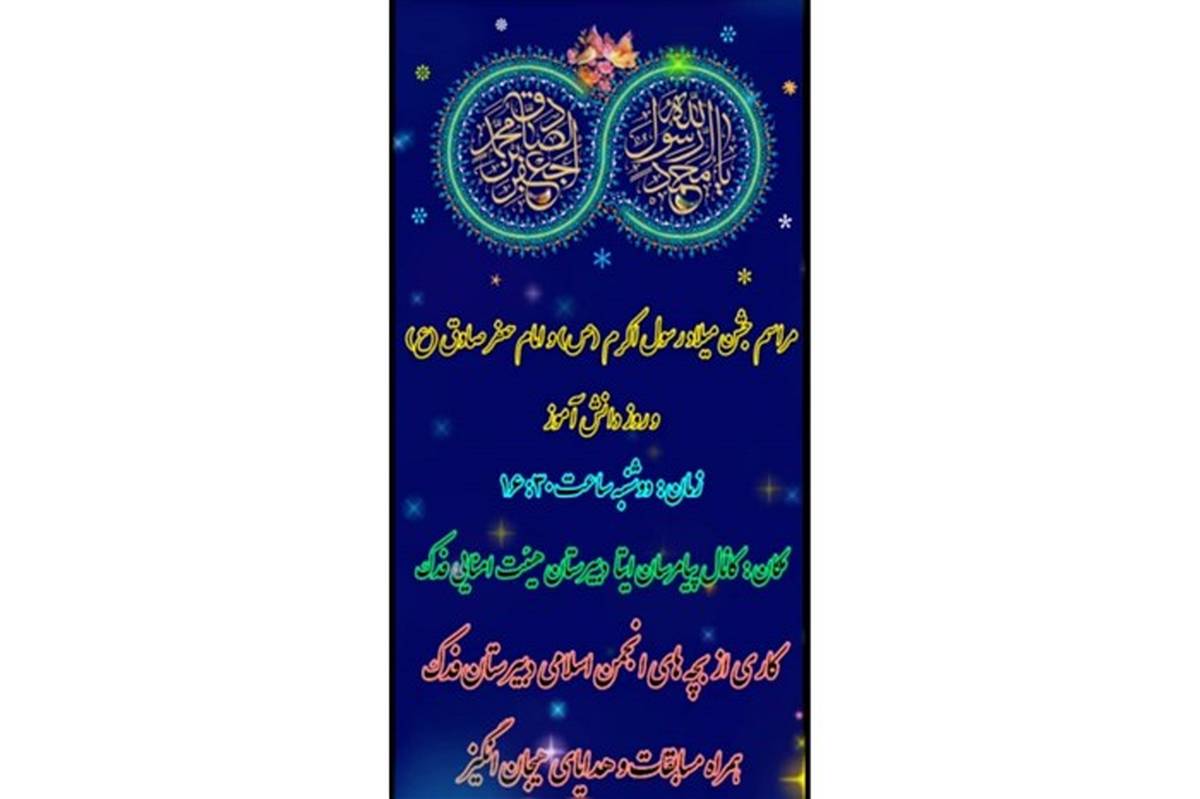 یا محمد رسول الله
جعفر بن محمد الصادق
مراسم جشن میلاد رسول اکرم (ص) و امام جعفر صادق (ع)
و روز دانش آموز
زمان: دوشنبه ساعت ۱۶:۳۰
مکان: کانال پیامرسان ایتا دبیرستان هیئت امنایی فدک
کاری از بچه های انجمن اسلامی دبیرستان فدک
همراه مسابقات و هدایای هیجان انگیز